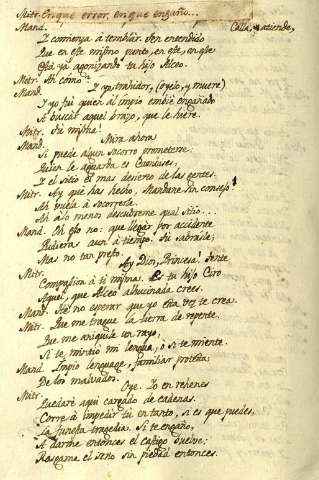 Mitr. En què error, en que engaño...
Mand. Calla, y atiende,
Y comienza à temblar. Ten entendido
Que en este mismo punto, en este, en este
Està ya agonizando tu hijo Alceo.
Mitr. Ah como?
Mand. Y o, traidor, (oyelo, y muere)
Y yo fui quien al impio embiè engañado
A buscàr aquel brazo, que le hiere.
Mitr. Tù misma!
Mand. Mira ahora
Si puede algun socorro prometerse.
Quien le aguarda es Cambises,
Y el sitio el mas desierto de las gentes.
Mitr. Ay què has hecho, Mandane sin consejo!
Ah buela à socorrerle.
Ah à lo menos descubreme qual sitio...
Mand. Ah esso no: que llegar por accidente
Pudieras aun à tiempo. Tù sabràsle;
Mas no tan presto.
Mitr. Ay Dios, Princesa! Tente
Compasion à ti misma. Es tu hijo Ciro
Aquel, que Alceo alhucinada crees.
Mand. No; no esperar que yo esta vez te crea.
Mitr. Que me trague la tierra de repente.
Que me aniquile un rayo,
Si te mintiò mi lengua, o si te miente.
Mand. Impio lenguage, familiar protesta
De los malvados.
Mitr. Oye. Yo en rehenes
Quedarè aqui cargado de cadenas.
Corre à impedir tù en tanto, si es que puedes,
La funesta tragedia. Si te engaño,
A darme entonces el castigo buelve;
Rasgame el seno sin piedad entonces.